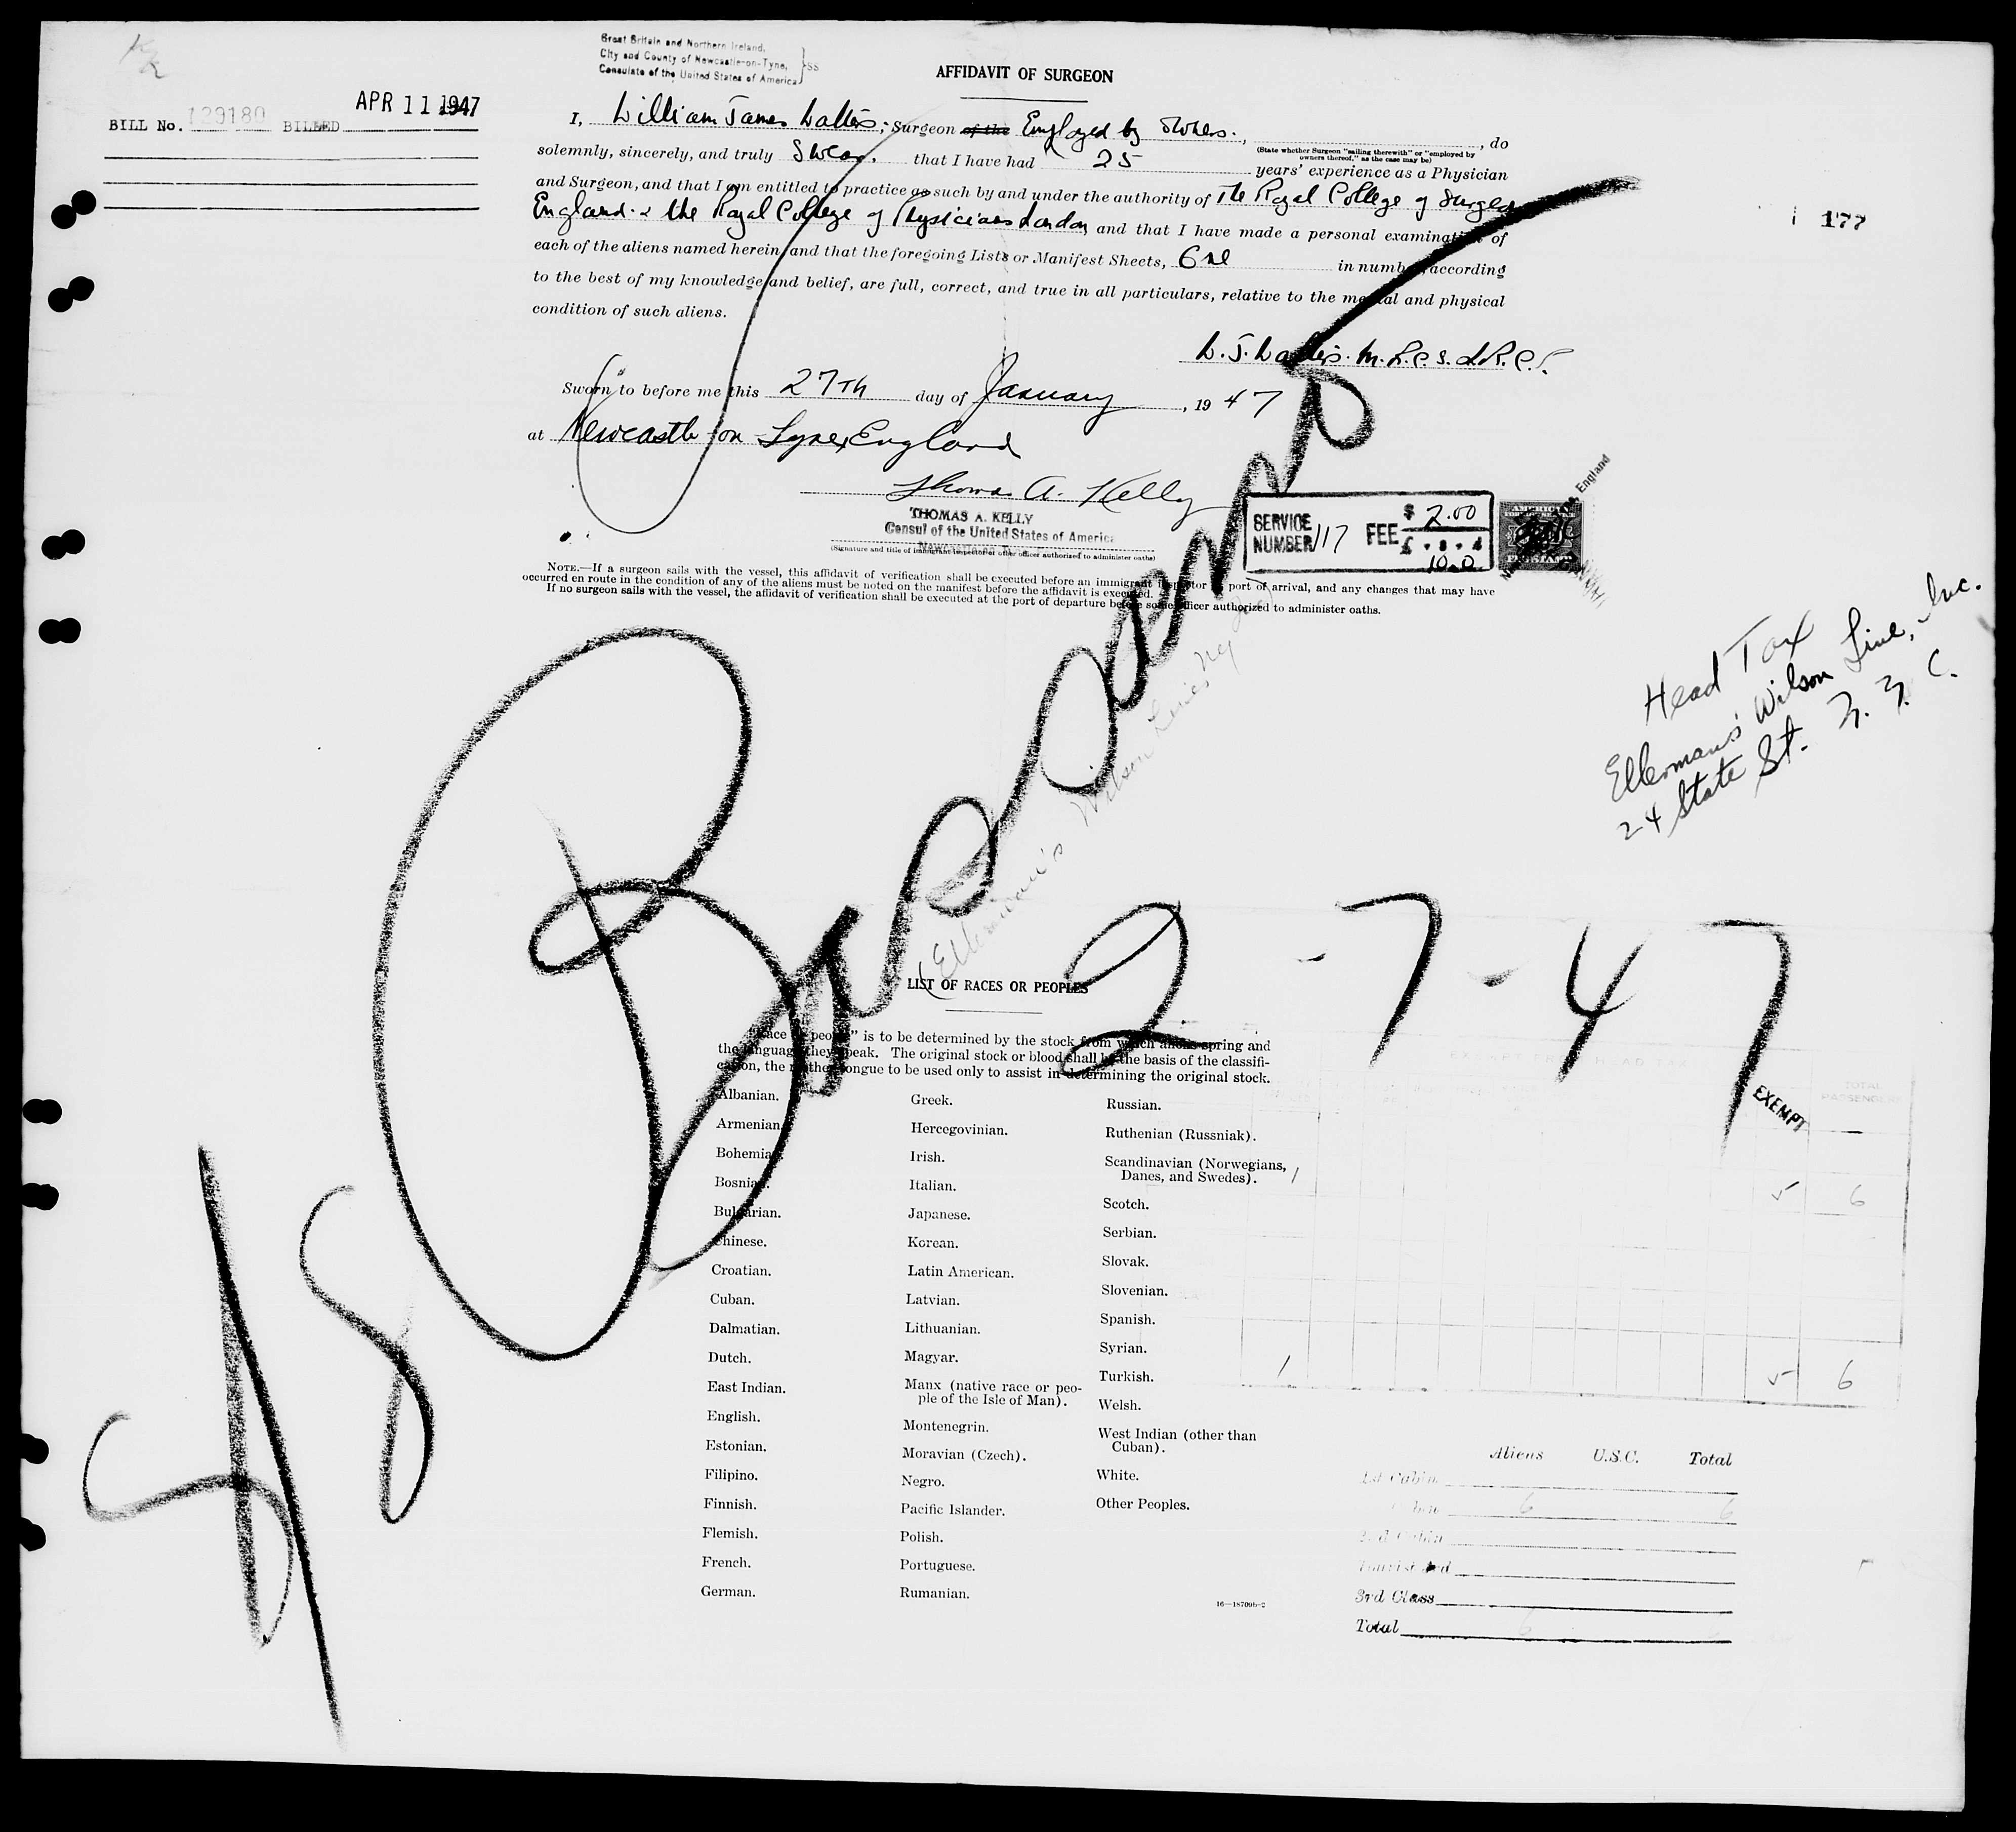 Great Britain and Northern Ireland,
City and County of Newcastle-on-Tyne, } SS
Consulate of the United States of America
AFFIDAVIT OF SURGEON
BILL No. 129180 BILLED APR 11 1947
I, William James Wallis; Surgeon of the Employed by owners., do
(State whether Surgeon "sailing therewith" or "employed by
owners thereof," as the case may be)
solemnly, sincerely, and truly Swear. that I have had 25 years' experience as a Physician
and Surgeon, and that I am entitled to practice as such by and under the authority of The Royal College of Surgeons
England. & the Royal College of Physicians London and that I have made a personal examination of
each of the aliens named herein, and that the foregoing Lists or Manifest Sheets, One in number, according
to the best of my knowledge and belief, are full, correct, and true in all particulars, relative to the mental and physical
condition of such aliens.
177
W. J. Wallis. M.R.C.S. L.R.C.P.
Sworn to before me this 27th day of January, 1947
at Newcastle-on-Tyne, England
Thomas A. Kelly
THOMAS A. KELLY
Consul of the United States of America
(Signature and title of immigrant inspector or other officer authorized to administer oaths)
SERVICE NUMBER 117 FEE $ 2.00
£ . s . d
10.0
England
NOTE.—If a surgeon sails with the vessel, this affidavit of verification shall be executed before an immigrant inspector at port of arrival, and any changes that may have
occurred en route in the condition of any of the aliens must be noted on the manifest before the affidavit is executed.
If no surgeon sails with the vessel, the affidavit of verification shall be executed at the port of departure before some officer authorized to administer oaths.
Head Tax
Ellerman's Wilson Line, Inc.
24 State St. N. Y. C.
Ellerman's Wilson Line
2-7-47
LIST OF RACES OR PEOPLES
"Race or people" is to be determined by the stock from which aliens spring and
the language they speak. The original stock or blood shall be the basis of the classifi-
cation, the mother tongue to be used only to assist in determining the original stock.
Albanian.
Armenian.
Bohemian.
Bosnian.
Bulgarian.
Chinese.
Croatian.
Cuban.
Dalmatian.
Dutch.
East Indian.
English.
Estonian.
Filipino.
Finnish.
Flemish.
French.
German.
Greek.
Hercegovinian.
Irish.
Italian.
Japanese.
Korean.
Latin American.
Latvian.
Lithuanian.
Magyar.
Manx (native race or peo-
ple of the Isle of Man).
Montenegrin.
Moravian (Czech).
Negro.
Pacific Islander.
Polish.
Portuguese.
Rumanian.
Russian.
Ruthenian (Russniak).
Scandinavian (Norwegians,
Danes, and Swedes).
Scotch.
Serbian.
Slovak.
Slovenian.
Spanish.
Syrian.
Turkish.
Welsh.
West Indian (other than
Cuban).
White.
Other Peoples.
16—18709b-2
EXEMPT FROM HEAD TAX
EXEMPT
TOTAL
PASSENGERS
1 6
1 6
Aliens U.S.C. Total
1st Cabin
6 6
2nd Cabin
3rd Class
Total 6